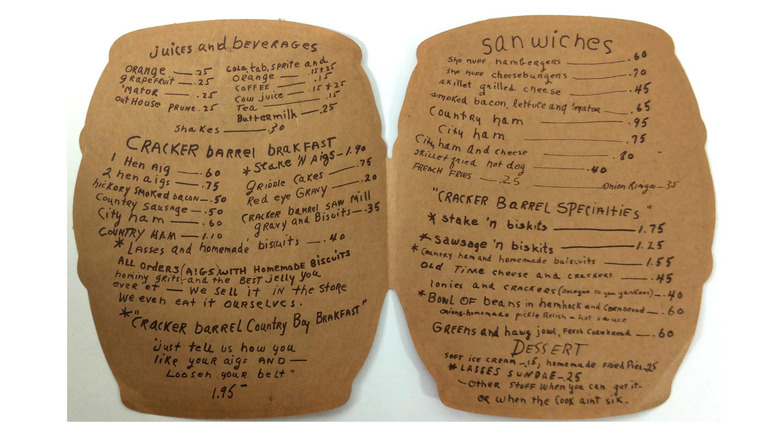 juices and beverages
ORANGE — .25
grapefruit — .25
'mator — .25
outHouse PRUNE .25
cola, tab, sprite and
orange — .15 & 25
COFFEE — .15
Cow juice — .15 & 25
Tea — .15
Buttermilk — .25
Shakes — .30
CRACKER barrel BRAKFAST
1 Hen Aig — .60
2 hen aigs — .75
hickory smoked bacon — .50
Country sausage — .50
City ham — .60
COUNTRY HAM — 1.10
* Stake 'N Aigs — 1.90
Griddle Cakes — .75
Red eye GRAVY — .20
CRACKER barrel SAW Mill
gravy and Biscuits — .35
* Lasses and homemade biscuits — .40
ALL ORDERS/AIGS WITH Homemade BISCUITS
hominy grits and the BEST jelly you
ever et — We sell it in the store
We even eat it ourselves.
* "CRACKER barrel Country Boy BRAKFAST"
"just tell us how you
like your aigs AND —
Loosen your belt"
1.95
sanwiches
sho nuff hambergers — .60
sho nuff cheeseburgers — .70
skillet grilled cheese — .45
smoked bacon, lettuce and 'mator — .65
Country ham — .95
City ham — .75
City ham and cheese — .80
skillet fried hot dog — .40
FRENCH FRIES — .25 — Onion Rings — .35
"CRACKER BARREL SPECIALTIES"
* Stake 'n biskits — 1.75
* Sawsage 'n biskits — 1.25
* Country ham and homemade buiscuits — 1.55
OLD TIME cheese and crackers — .45
lonies and crackers (Bologna to you yankees) — .40
* BOWL OF beans in hamhock and Cornbread — .60
onions - homemade pickle Relish - hot sauce
Greens and hawg jowl, Fresh Cornbread — .60
DESSERT
Soft ice cream — .15, homemade fried Pies .25
* LASSES SUNDAE — .25
— Other stuff when you can get it -
OR when the Cook aint sik.